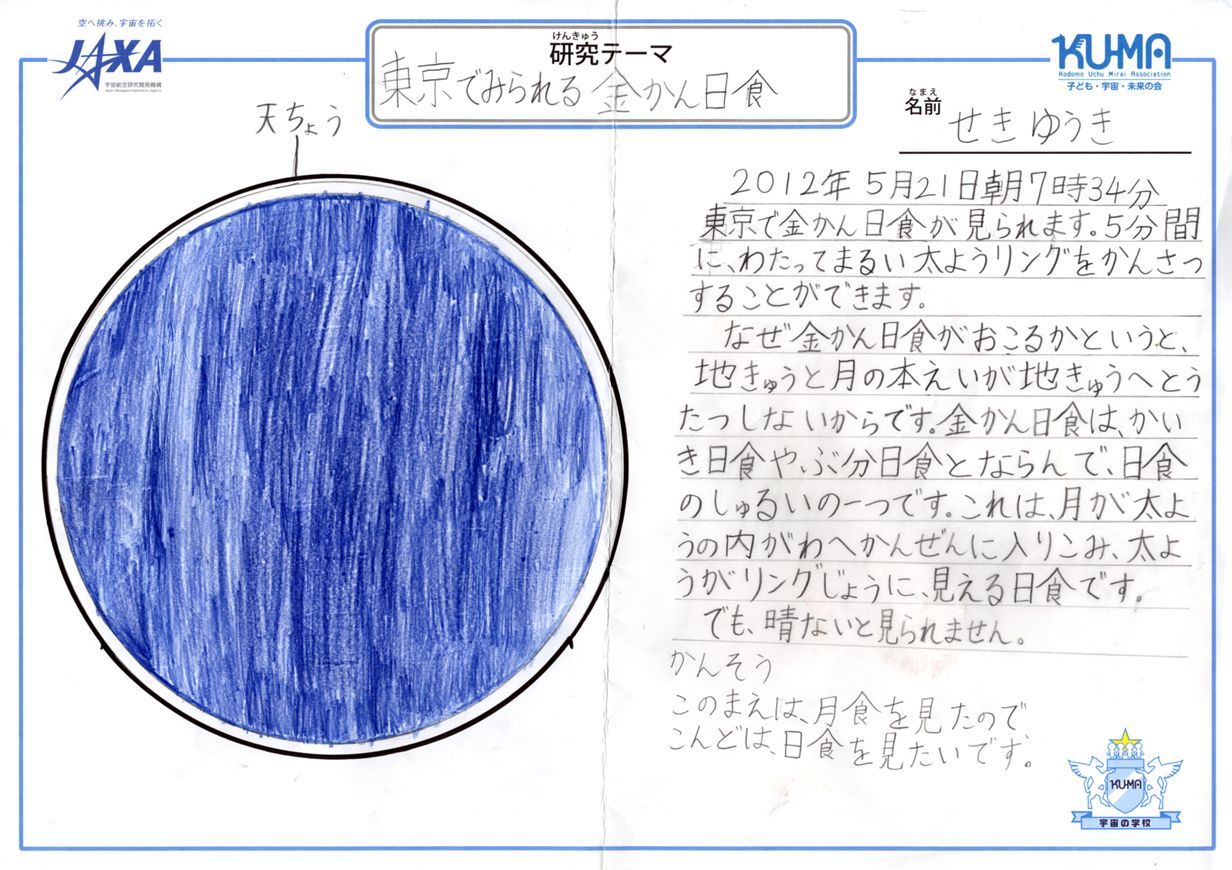 空へ挑み、宇宙を拓く
JAXA
宇宙航空研究開発機構
Japan Aerospace Exploration Agency
けんきゅう
研究テーマ
東京でみられる金かん日食
KU-MA
Kodomo Uchu Mirai Association
子ども・宇宙・未来の会
なまえ
名前
せきゆうき
天ちょう
2012年5月21日朝7時34分
東京で金かん日食が見られます。5分間
に、わたってまるい太ようリングをかんさつ
することができます。
なぜ金かん日食がおこるかというと、
地きゅうと月の本えいが地きゅうへとう
たっしないからです。金かん日食は、かい
き日食や、ぶ分日食とならんで、日食
のしゅるいの一つです。これは、月が太よ
うの内がわへかんぜんに入りこみ、太よ
うがリングじょうに、見える日食です。
でも、晴ないと見られません。
かんそう
このまえは、月食を見たので、
こんどは、日食を見たいです。
KUMA
宇宙の学校